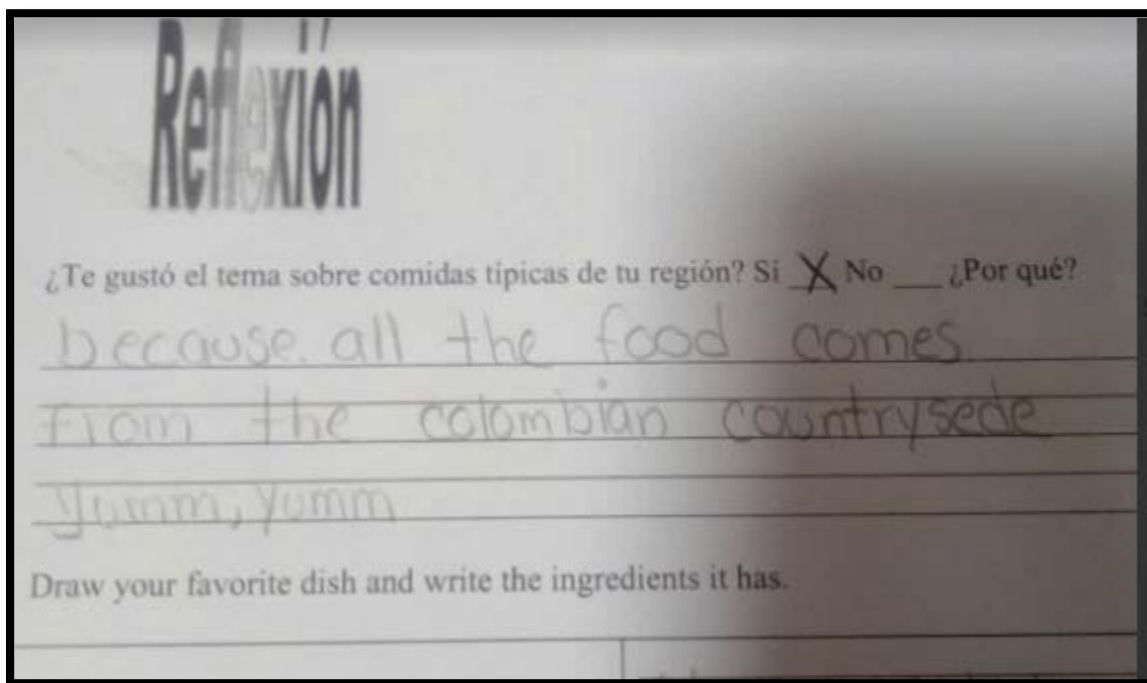 Reflexión
¿Te gustó el tema sobre comidas típicas de tu región? Sí X No ___ ¿Por qué?
because all the food comes
from the colombian countrysede
yumm, yumm
Draw your favorite dish and write the ingredients it has.